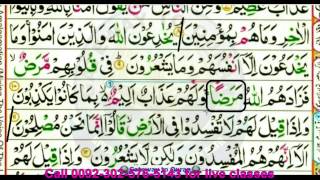 الْاٰخِرِ وَمَا هُمْ بِمُؤْمِنِيْنَ يُخٰدِعُوْنَ اللّٰهَ وَالَّذِيْنَ اٰمَنُوْا وَمَا
يَخْدَعُوْنَ اِلَّاۤ اَنْفُسَهُمْ وَمَا يَشْعُرُوْنَ فِيْ قُلُوْبِهِمْ مَّرَضٌ
فَزَادَهُمُ اللّٰهُ مَرَضًا وَلَهُمْ عَذَابٌ اَلِيْمٌۢ بِمَا كَانُوْا يَكْذِبُوْنَ
وَاِذَا قِيْلَ لَهُمْ لَا تُفْسِدُوْا فِي الْاَرْضِ قَالُوْۤا اِنَّمَا نَحْنُ مُصْلِحُوْنَ
اَلَاۤ اِنَّهُمْ هُمُ الْمُفْسِدُوْنَ وَلٰكِنْ لَّا يَشْعُرُوْنَ وَاِذَا قِيْلَ لَهُمْ
Call for live classes